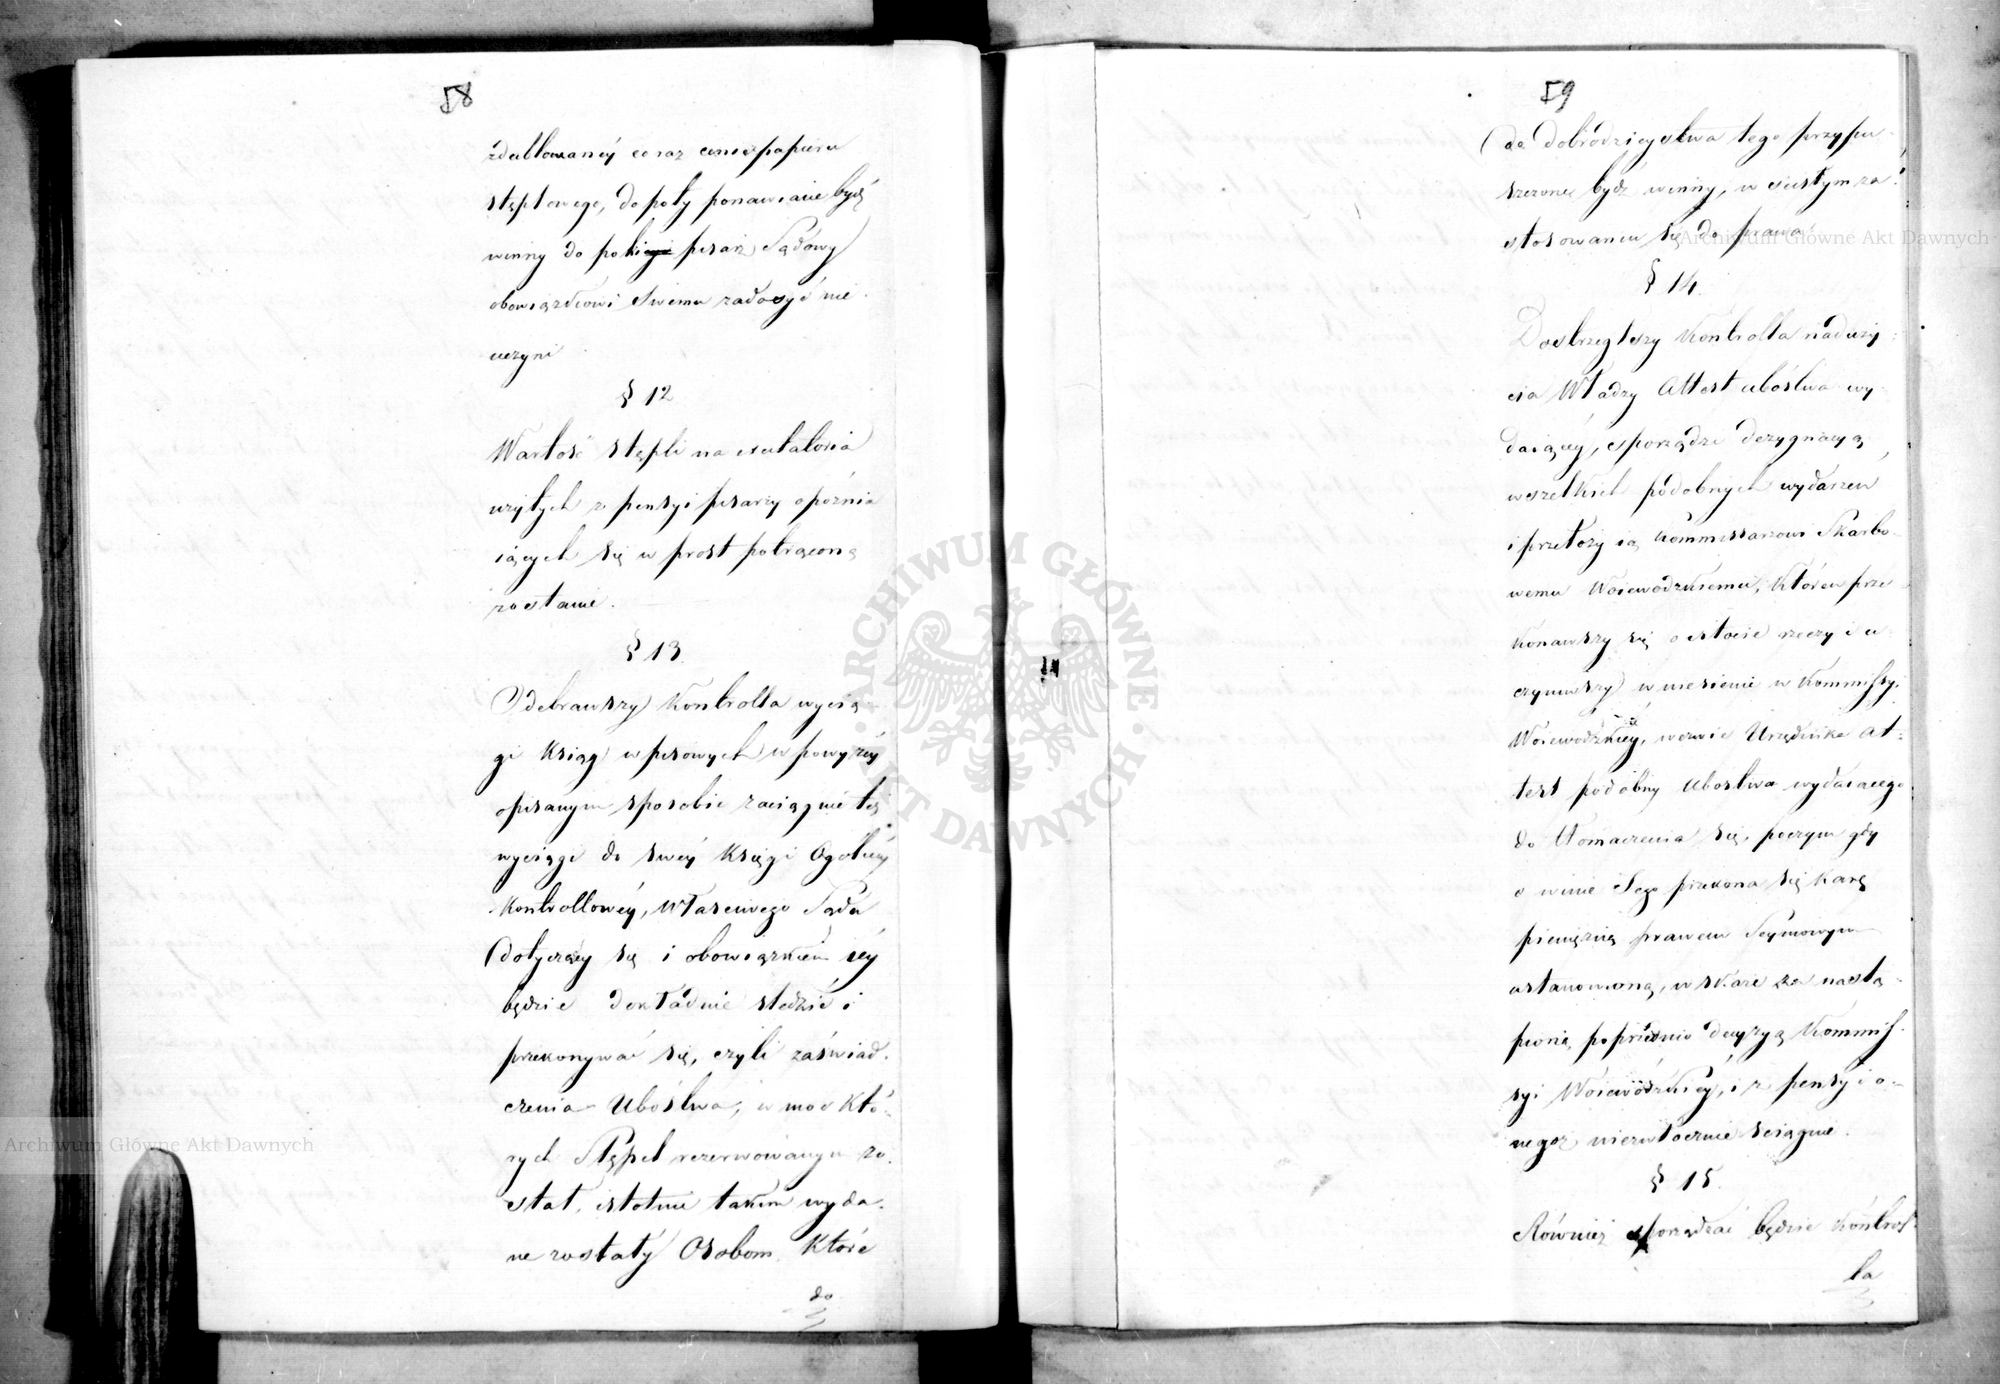 58
zdublowaney co raz cenie papieru
stęplowego, do poty ponawiane bydź
winny do poki pisarz Sądowy
obowiązkowi swemu zadosyć nie
uczyni
§ 12
Wartość stępli na excitatoria
użytych z pensyi pisarzy opóźnia
iących się w prost potrącona
zostanie.
§ 13
Odebrawszy Kontrolla wycią
gi Ksiąg wpisowych w powyżey
opisanym sposobie zaciągnie też
wyciągi do swey Księgi Ogolney
Kontrollowey, Właściwego Sądu
dotyczącey się i obowiązkiem iey
będzie dokładnie śledzić i
przekonywać się, czyli zaświad
czenia Ubóstwa, w moc któ
rych Stępel rezerwowanym zo
stał, istotnie takim wyda
ne zostały Osobom, Które
do
59
do dobrodzieystwa tego przypu
szczone bydź winny, w ścisłym za
stosowaniu się do prawa
§ 14.
Dostrzegłszy Kontrolla naduży
cia Władzy Attest ubóstwa wy
daiącey, sporządzi dezygnacyą
wszelkich podobnych wydarzeń
i przełoży ią Kommissarzowi Skarbo
wemu Woiewódzkiemu, Który prze
konawszy się o istocie rzeczy i u
czyniwszy wniesienie w Kommissyi
Woiewódzkiey, wezwie Urzędnika At
test podobny Ubostwa wydaiącego
do tłomaczenia się, poczym gdy
o winie Jego przekona się karę
pieniężną prawem Seymowym
ustanowioną, wskaże za nastą
pioną poprzednio decyzyą Kommis
syi Woiewódzkiey, i z pensyi o
negoż niezwłocznie ściągnie.
§ 15.
Również sporządzać będzie Kontrol
la
ARCHIWUM GŁÓWNE AKT DAWNYCH
Archiwum Główne Akt Dawnych
Archiwum Główne Akt Dawnych